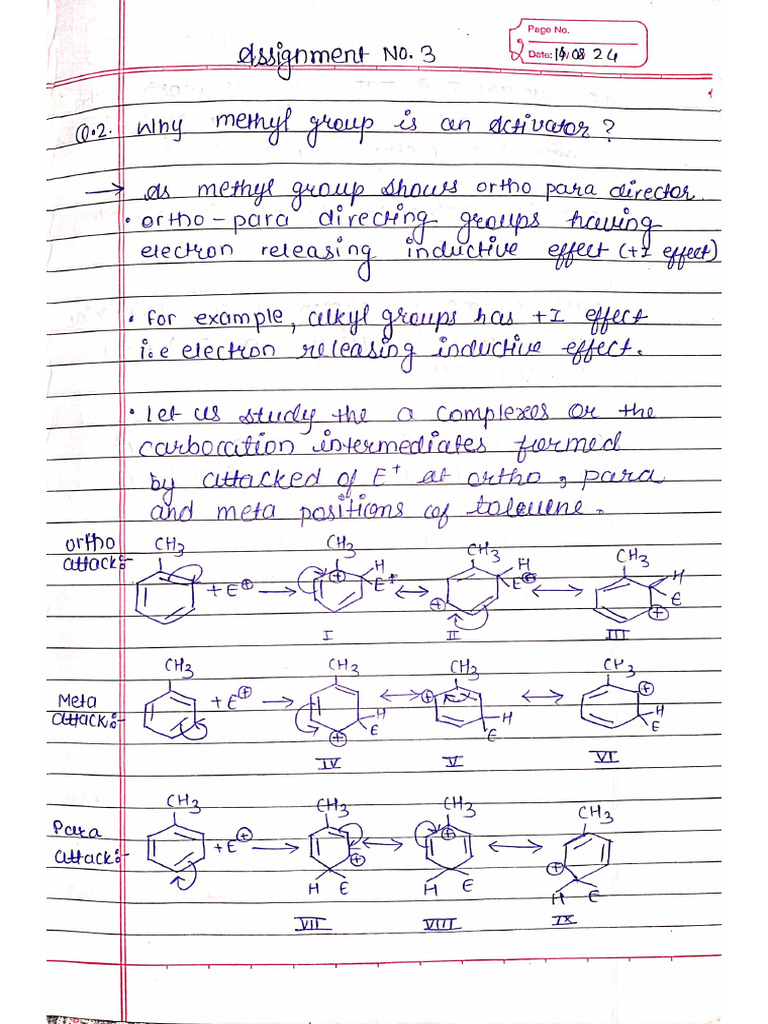 Page No.
Date: 19/08 24
Assignment No. 3
Q.2. Why methyl group is an activator?
→ As methyl group shows ortho para director.
• ortho-para directing groups having
electron releasing inductive effect (+I effect)
• for example, alkyl groups has +I effect
i.e electron releasing inductive effect.
• Let us study the σ complexes or the
carbocation intermediates formed
by attacked of E⁺ at ortho, para
and meta positions of toluene.
ortho attack:-
CH3 CH3 CH3 CH3
+ E⊕ → ⊕ H E⁺ ↔ ⊕ H E⊕ ↔ H E ⊕
I II III
Meta attack:-
CH3 CH3 CH3 CH3
+ E⊕ → H E ⊕ ↔ ⊕ H E ↔ ⊕ H E
IV V VI
Para attack:-
CH3 CH3 CH3 CH3
+ E⊕ → ⊕ ↔ ⊕ ↔ ⊕
H E H E H E
VII VIII IX